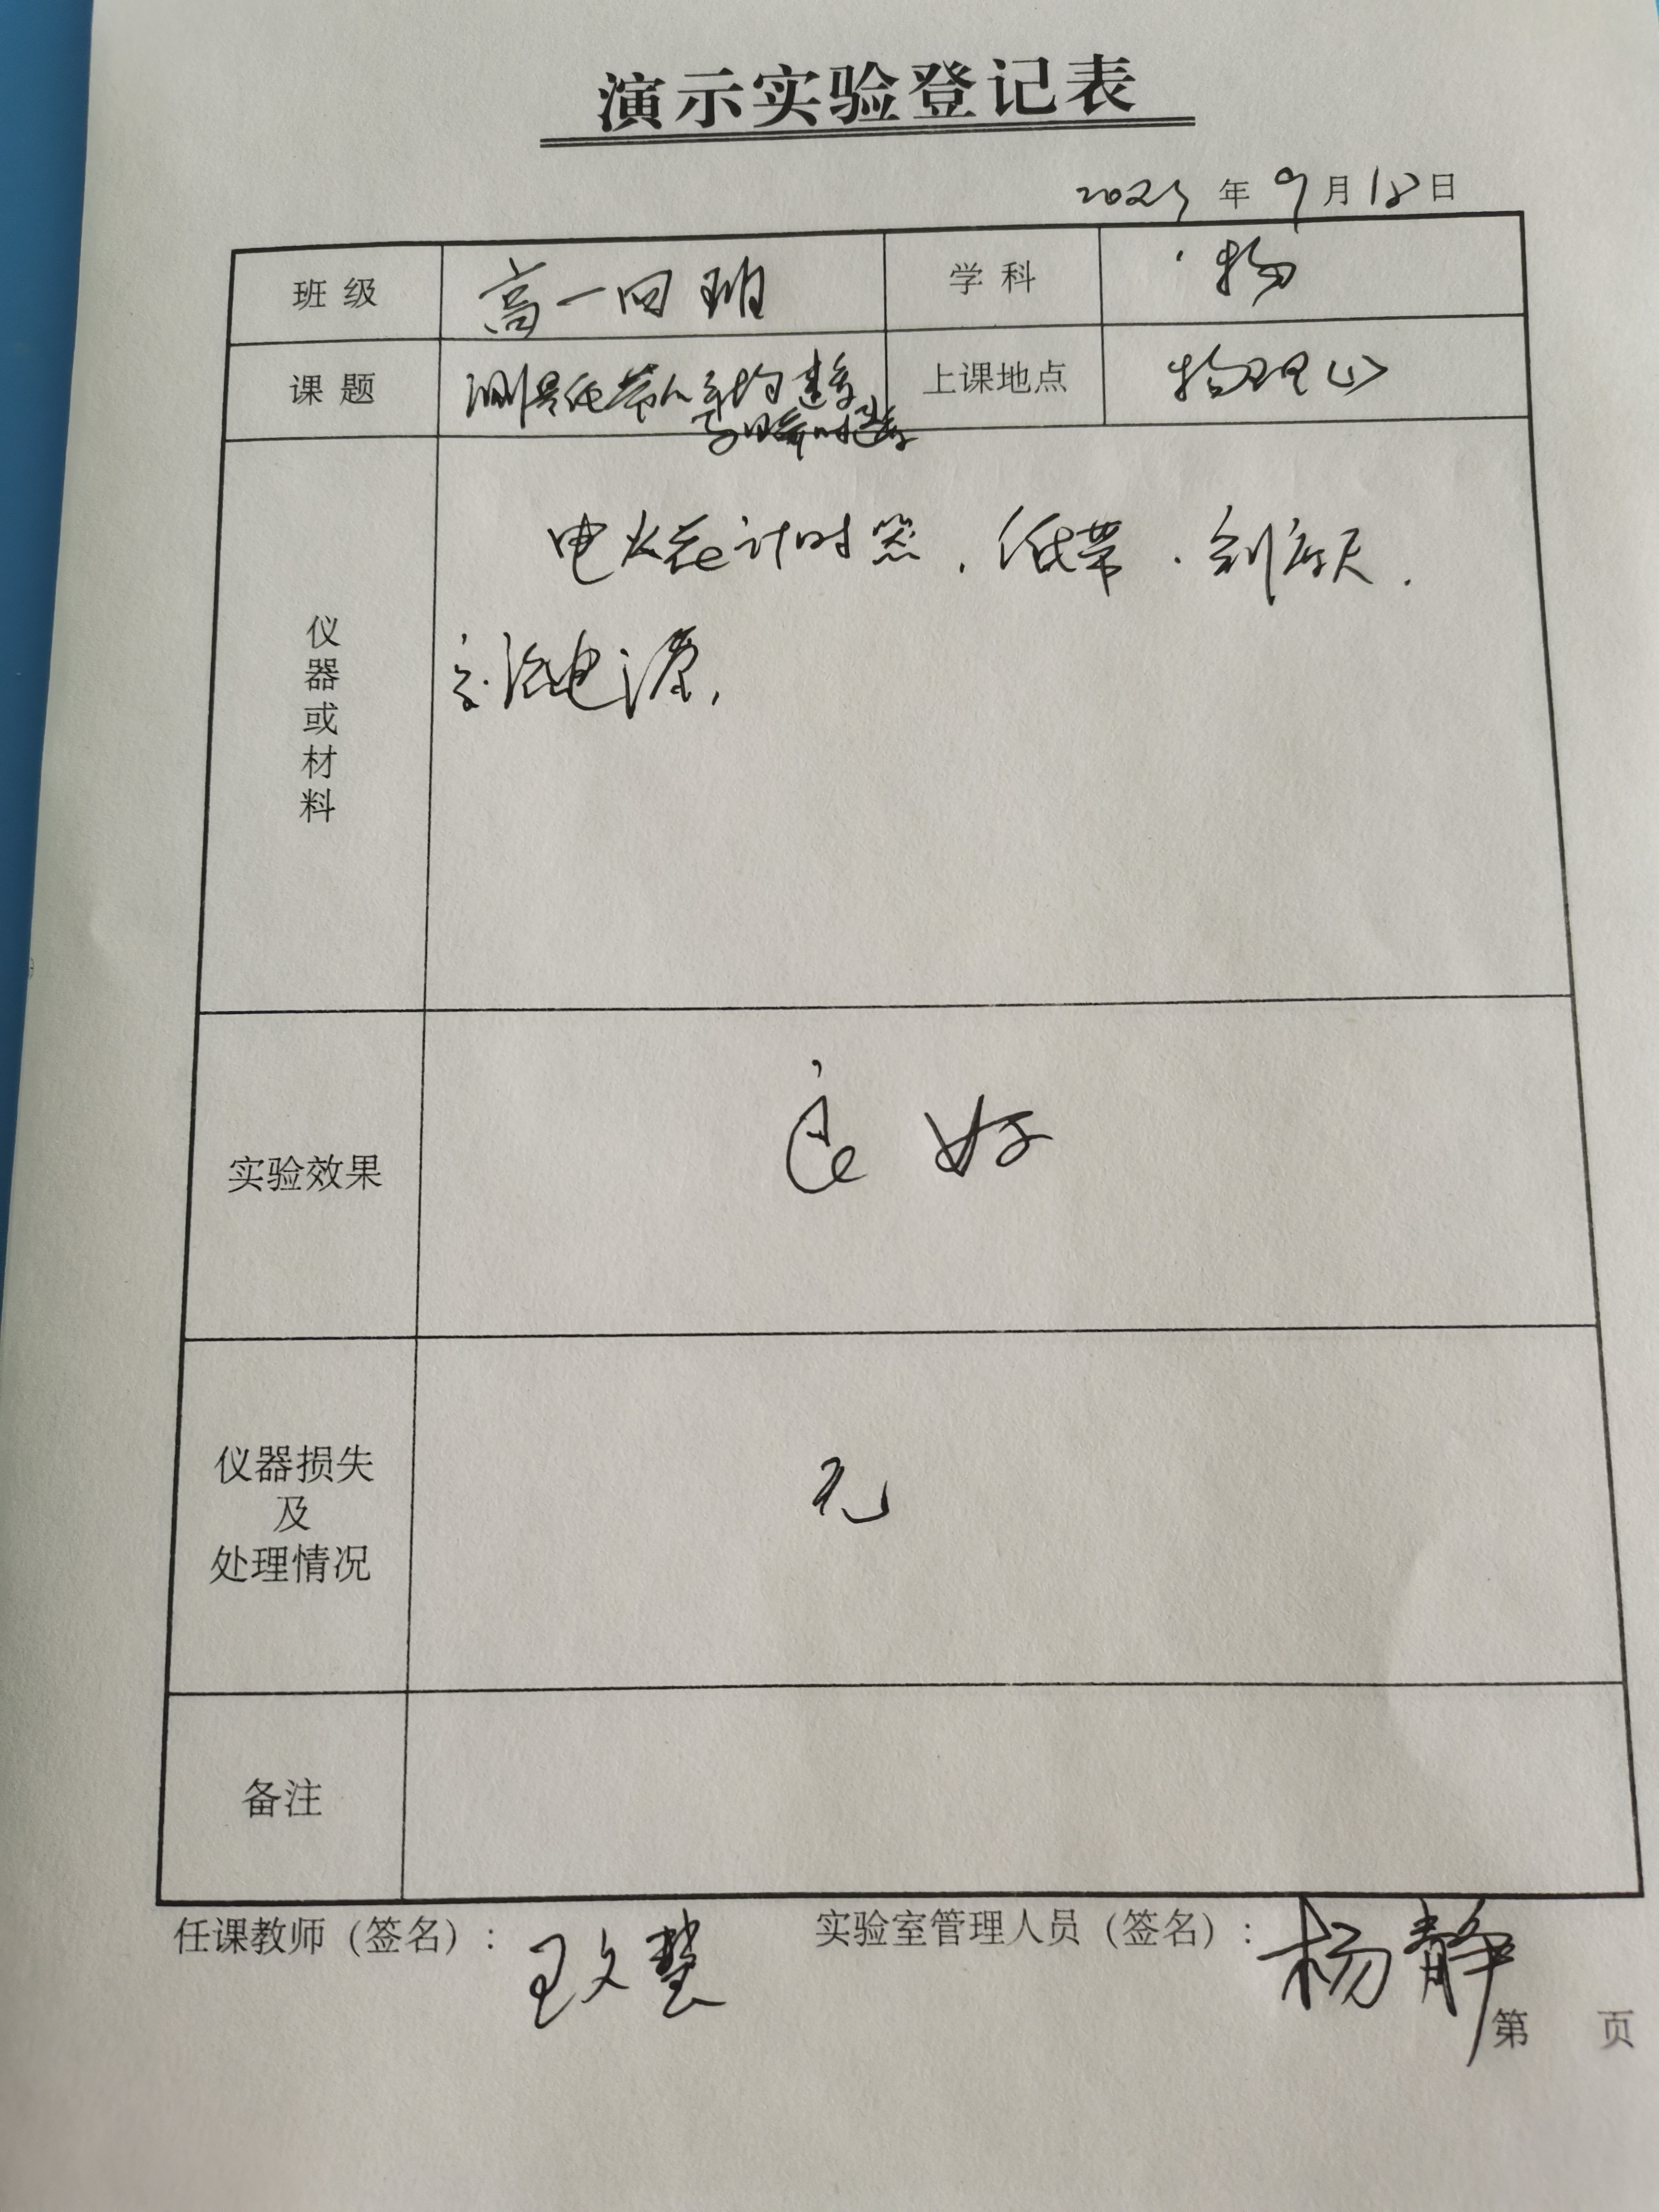 演示实验登记表
年 9月18日
班级 高一四班 学科 物
课题 测量纸带的平均速度 上课地点 物理(1)
与瞬时速度
仪器或材料 电火花计时器，纸带．刻度尺．
交流电源，
实验效果 良好
仪器损失
及
处理情况 无
备注
任课教师（签名）：王文慧 实验室管理人员（签名）：杨静
第 页